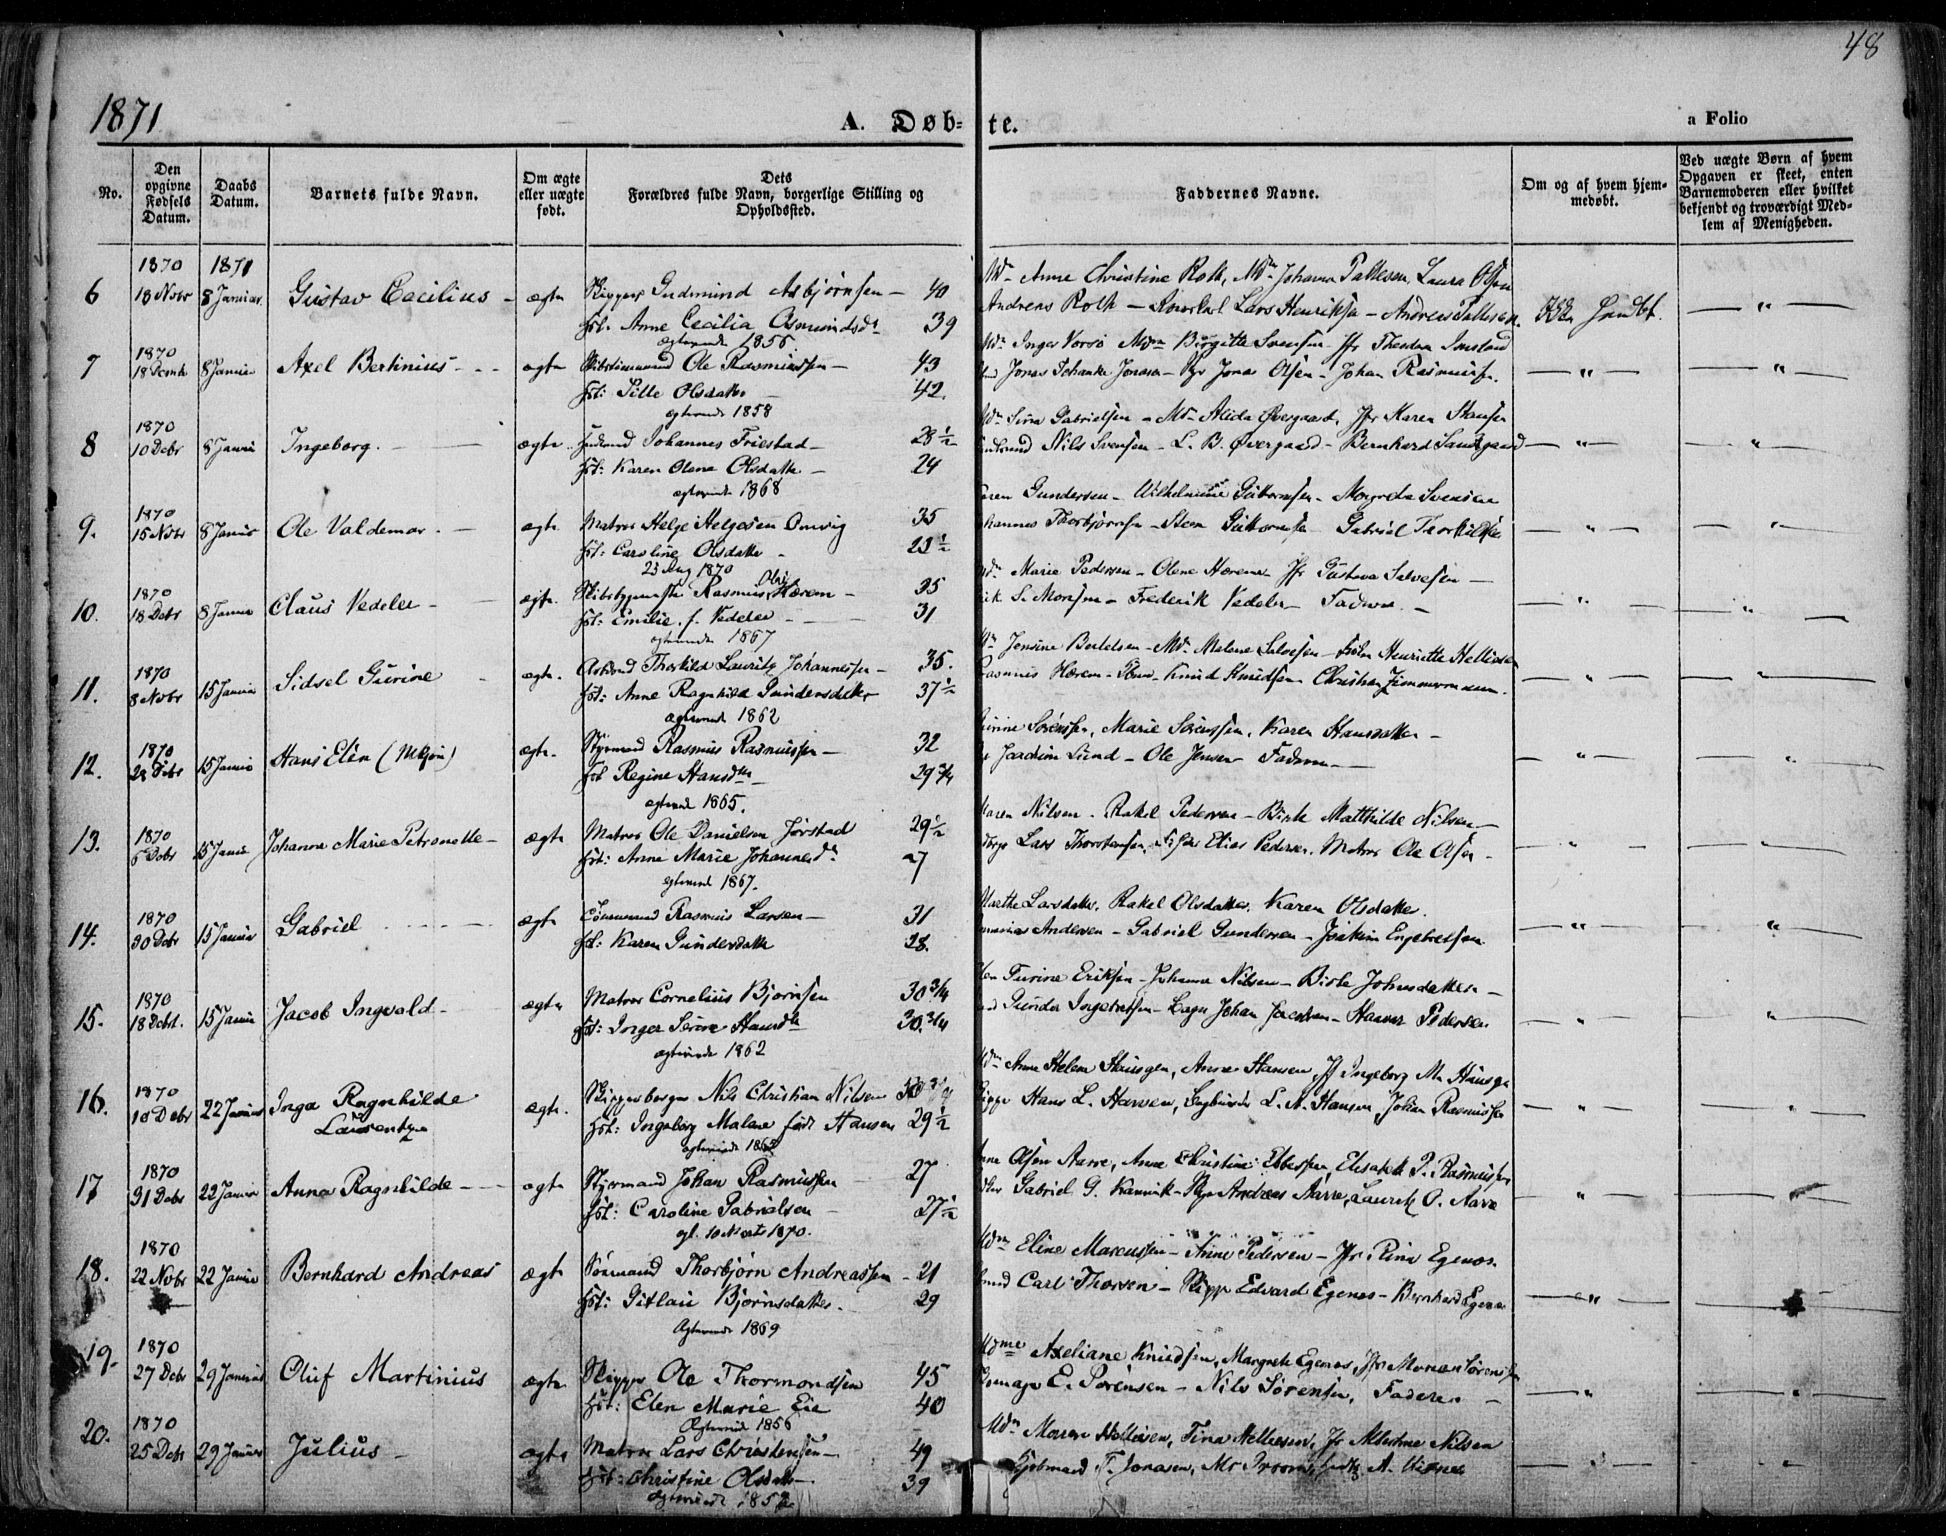 48
1871
A. Døb-te.
a Folio
No.
Den opgivne Fødsels Datum.
Daabs Datum.
Barnets fulde Navn.
Om ægte eller uægte født.
Dets Forældres fulde Navn, borgerlige Stilling og Opholdssted.
Faddernes Navne.
Om og af hvem hjemmedøbt.
Ved uægte Børn af hvem Opgaven er skeet, enten Barnemoderen eller hvilket bekjendt og troværdigt Medlem af Menigheden.
1870 1871
6 18 Novbr 8 Januar Gustav Cecilius ægte Skipper Gudmund Asbjørnsen 40
Hst. Anne Cecilia Osmundsdr 39
ægteviede 1856
Mdm Anne Christine Roth, Mdm Johanna Tallesen, Laura Olsen
Andreas Roth — Lars Henriksen — Andreas Tallesen
1870
7 18 Decmb 8 Januar Axel Bertinius ægte Ole Rasmussen 43
Hst: Sille Olsdatter 42.
ægteviede 1858
Birgitte Svensen
Jonas Schanke Jonasen — Jonas Olsen — Johan Rasmussen
1870
8 10 Debr 8 Januar Ingeborg. ægte Johannes Friestad 28½
Hst: Karen Olene Olsdatter 24
ægteviede 1868
Sina Gabrielsen — Mdm Alida Øvergaard, Jfr Karen Hansen
Nils Svensen — L. B. Øvergaard — Bernhard Sandsgaard
1870
9. 15 Novbr 8 Januar Ole Valdemar ægte Matros Helge Helgesen Omvig 35
Hst: Caroline Olsdatter 23½
23 Aug 1870
Gundersen — Wilhelmine Guttormsen — Svensen
Thorbjørnsen — Steen Guttormsen Gabriel Thorkildsen
1870
10. 18 Debr 8 Januar Claus Vedeler ægte Rasmus Olsen Hærem 35
Hst: Emilie f. Vedeler 31
ægteviede 1867
Marie Pedersen — Olene Hærem Jfr Gustava Salvesen
Frederik Vedeler Faderen
1870
11. 8 Novbr 15 Januar Sidsel Gurine ægte Thorkild Lauritz Johannessen 35.
Hst: Anne Ragnhild Gundersdatter 37½
ægteviede 1862
Jensine Bertelsen — Mdm Malene Salvesen — Henriette Hellisen
Rasmus Hærem — Knud Knudsen — Christian Zimmermann
1870
12. 15 Januar Hans Elen ægte. Styrmand Rasmus Rasmussen 32
Hst Regine Hansdtr 29¾
ægteviede 1865.
Sørensen, Marie Sørensen, Karen Hansdatter
Joachim Lund — Ole Jensen Faderen
1870
13. 15 Januar Johanne Marie Petronelle ægte Matros Ole Danielsen Jørstad 29½
Hst: Anne Marie Johannesdr 27
ægteviede 1867.
Maren Nilsen. Rakel Pedersen — Birte Matthilde Nilsen
Lars Thorstensen, Elias Pedersen, Matros Ole Olsen
1870
14. 30 Debr 15 Januar Gabriel ægte Rasmus Larsen 31
Hst: Karen Gundersdatter 28.
Marthe Larsdatter, Rakel Olsdatter, Karen Olsdatter.
Andersen — Gabriel Gundersen — Joakim Engebretsen
1870
15. 18 Debr. 15 Januar Jacob Ingvald ægte Matros Cornelius Bjørnsen 30¾
Hst: Inger Serine Hansdtr 30.¾
ægteviede 1862
Turine Eriksen — Johanna Nilsen — Birte Johnsdatter
Gunder Ingebretsen — Johan Jacobsen — Haaver Pedersen
1870
16. 10 Debr 22 Januar Inga Ragnhilde Laurentze ægte. Skipperborger Nils Christian Nilsen
Hst: Ingeborg Malene født Hansen 29½
ægteviede 1865
Mdm Anne Helene Haugen, Anna Hansen, Jf Ingeborg M. Haugen
Skipper Hans L. Hansen, L. A. Hansen, Johan Rasmussen
1870
17 31 Debr 22 Januar Anna Ragnhilde ægte Styrmand Johan Rasmussen 27
Hst: Caroline Gabrielsen 27½
gl. 10 Marts 1870.
Olsen Aarre, Anne Christine Ebbesen, Elisabeth P. Rasmussen
Gabriel G. Kannik — Andreas Aarre, Laurits O. Aarre
1870
18. 22 Novbr 22 Januar Bernhard Andreas ægte Sømand Thorbjørn Andreassen 21
Hst: Gitlau Bjørnsdatter. 29
Ægteviede 1869
Mdm Eline Marcussen — Anne Pedersen — Jfr Rina Egenæs
Carl Thorsen — Skipp Edvard Egenes — Bernhard Egenæs
19. 1870
27 Debr 29 Januar Oluf Martinius ægte Skipper Ole Thormondsen 45
Hst: Elen Marie Eie 40
Ægteviede 1856
Mdme Axeliane Knudsen, Margrete Egenæs, Jfr Maren Sørensen
E. Sørensen — Nils Sørensen, Faderen
20. 1870
25 Debr 29 Januar Julius ægte Matros Lars Christensen 49
Hst: Christine Olsdatter 39
Ægteviede
Mdm Maren Hellisen, Tina Hellesen, Jfr Nilsen
Kjøbmand T. Jonasen,